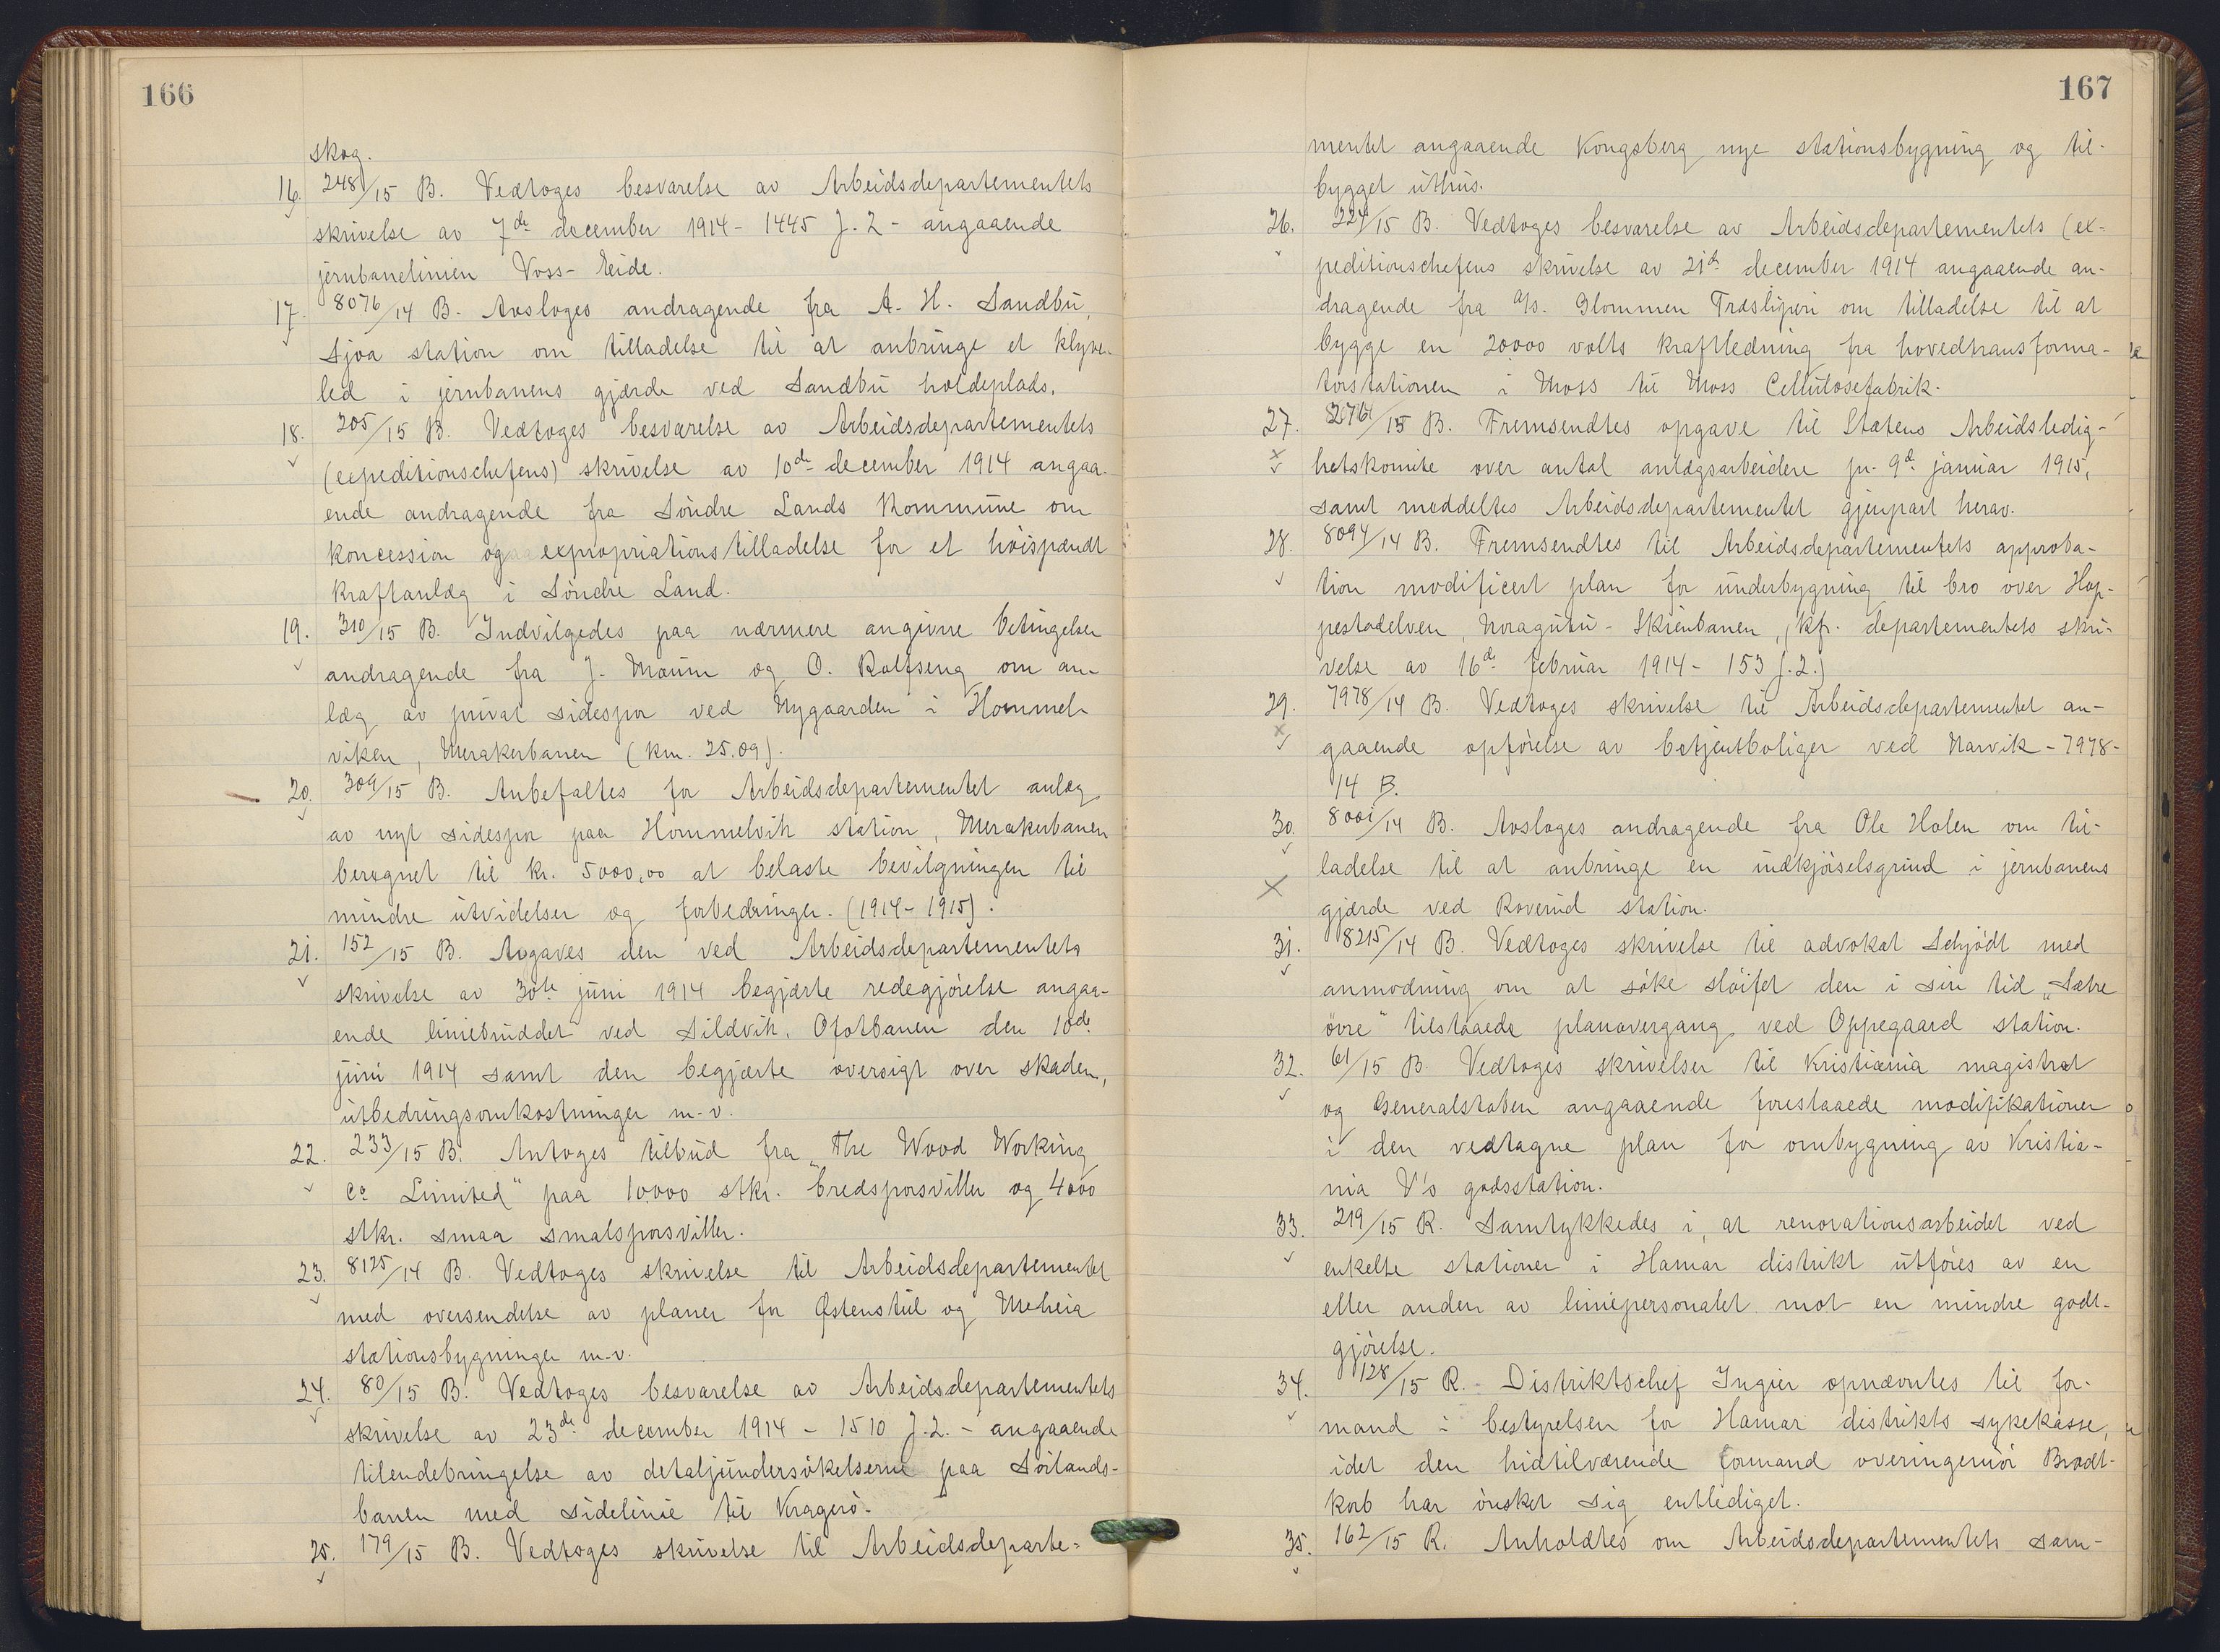 166
skog.
16. 248/15 B. Vedtoges besvarelse av Arbeidsdepartementets
skrivelse av 7de december 1914 - 1445 J. 2 - angaaende
jernbanelinien Voss - Eide.
17. 8076/14 B. Avsloges andragende fra A. H. Sandbu,
Sjoa station om tilladelse til at anbringe et klyve-
led i jernbanens gjærde ved Sandbu holdeplads.
18. 205/15 B. Vedtoges besvarelse av Arbeidsdepartementets
(expeditionschefens) skrivelse av 10de december 1914 angaa-
ende andragende fra Söndre Lands Kommune om
koncession og expropriationstilladelse for et höispændt
kraftanlæg i Söndre Land.
19. 310/15 B. Indvilgedes paa nærmere angivne betingelser
andragende fra J. Maum og O. Rolfseng om an-
læg av privat sidespor ved Nygaarden i Hommel-
viken, Merakerbanen (km. 25.09).
20. 309/15 B. Anbefaltes for Arbeidsdepartementet anlæg
av nyt sidespor paa Hommelvik station, Merakerbanen
beregnet til kr. 5000,00 at belaste bevilgningen til
mindre utvidelser og forbedringer. (1914-1915).
21. 152/15 B. Avgaves den ved Arbeidsdepartementets
skrivelse av 30te juni 1914 begjærte redegjörelse angaa-
ende liniebruddet ved Sildvik, Ofotbanen den 10de
juni 1914 samt den begjærte oversigt over skaden,
utbedringsomkostninger m.v.
22. 233/15 B. Antoges tilbud fra "The Wood Working
Co Limited" paa 10000 stkr. bredsporsviller og 4000
stkr. smaa smalsporsviller.
23. 8125/14 B. Vedtoges skrivelse til Arbeidsdepartementet
med oversendelse av planer for Østenstul og Meheia
stationsbygninger m.v.
24. 80/15 B. Vedtoges besvarelse av Arbeidsdepartementets
skrivelse av 23de december 1914 - 1510 J.2. - angaaende
tilendebringelse av detaljundersökelserne paa Sörlands-
banen med sidelinie til Kragerö.
25. 179/15 B. Vedtoges skrivelse til Arbeidsdeparte-
167
mentet angaaende Kongsberg nye stationsbygning og til-
bygget uthus.
26. 224/15 B. Vedtoges besvarelse av Arbeidsdepartementets (ex-
peditionschefens skrivelse av 21de december 1914 angaaende an-
dragende fra A/s. Glommen Træsliperi om tilladelse til at
bygge en 20000 volts kraftledning fra hovedtransforma-
torstationen i Moss til Moss Cellulosefabrik.
27. /15 B. Fremsendtes opgave til Statens Arbeidsledig-
hetskomite over antal anlægsarbeidere pr. 9de januar 1915,
samt meddeltes Arbeidsdepartementet gjenpart herav.
28. 8094/14 B. Fremsendtes til Arbeidsdepartementets approba-
tion modificert plan for underbygning til bro over Hop-
pestadelven, Noragutu - Skienbanen, (kfr. departementets skri-
velse av 16de februar 1914 - 153 J.2.)
29. 7978/14 B. Vedtoges skrivelse til Arbeidsdepartementet an-
gaaende opförelse av betjentboliger ved Narvik - 7978-
14 B.
30. 8001/14 B. Avsloges andragende fra Ole Holen om til-
ladelse til at anbringe en indkjörselsgrind i jernbanens
gjærde ved Roverud station.
31. 8215/14 B. Vedtoges skrivelse til advokat Schjödt med
anmodning om at söke slöifet den i sin tid "Sætre
övre" tilstaaede planovergang ved Oppegaard station.
32. 61/15 B. Vedtoges skrivelser til Kristiania magistrat
og Generalstaben angaaende foreslaaede modifikationer
i den vedtagne plan for ombygning av Kristia-
nia V's godsstation.
33. 219/15 R. Samtykkedes i, at renovationsarbeidet ved
enkelte stationer i Hamar distrikt utföres av en
eller anden av liniepersonalet mot en mindre godt-
gjörelse.
34. 128/15 R. Distriktschef Ingier opnævntes til for-
mand i bestyrelsen for Hamar distrikts sykekasse,
idet den hidtilværende formand overingeniör Brodt-
korb har önsket sig entlediget.
35. 162/15 R. Anholdtes om Arbeidsdepartementets sam-